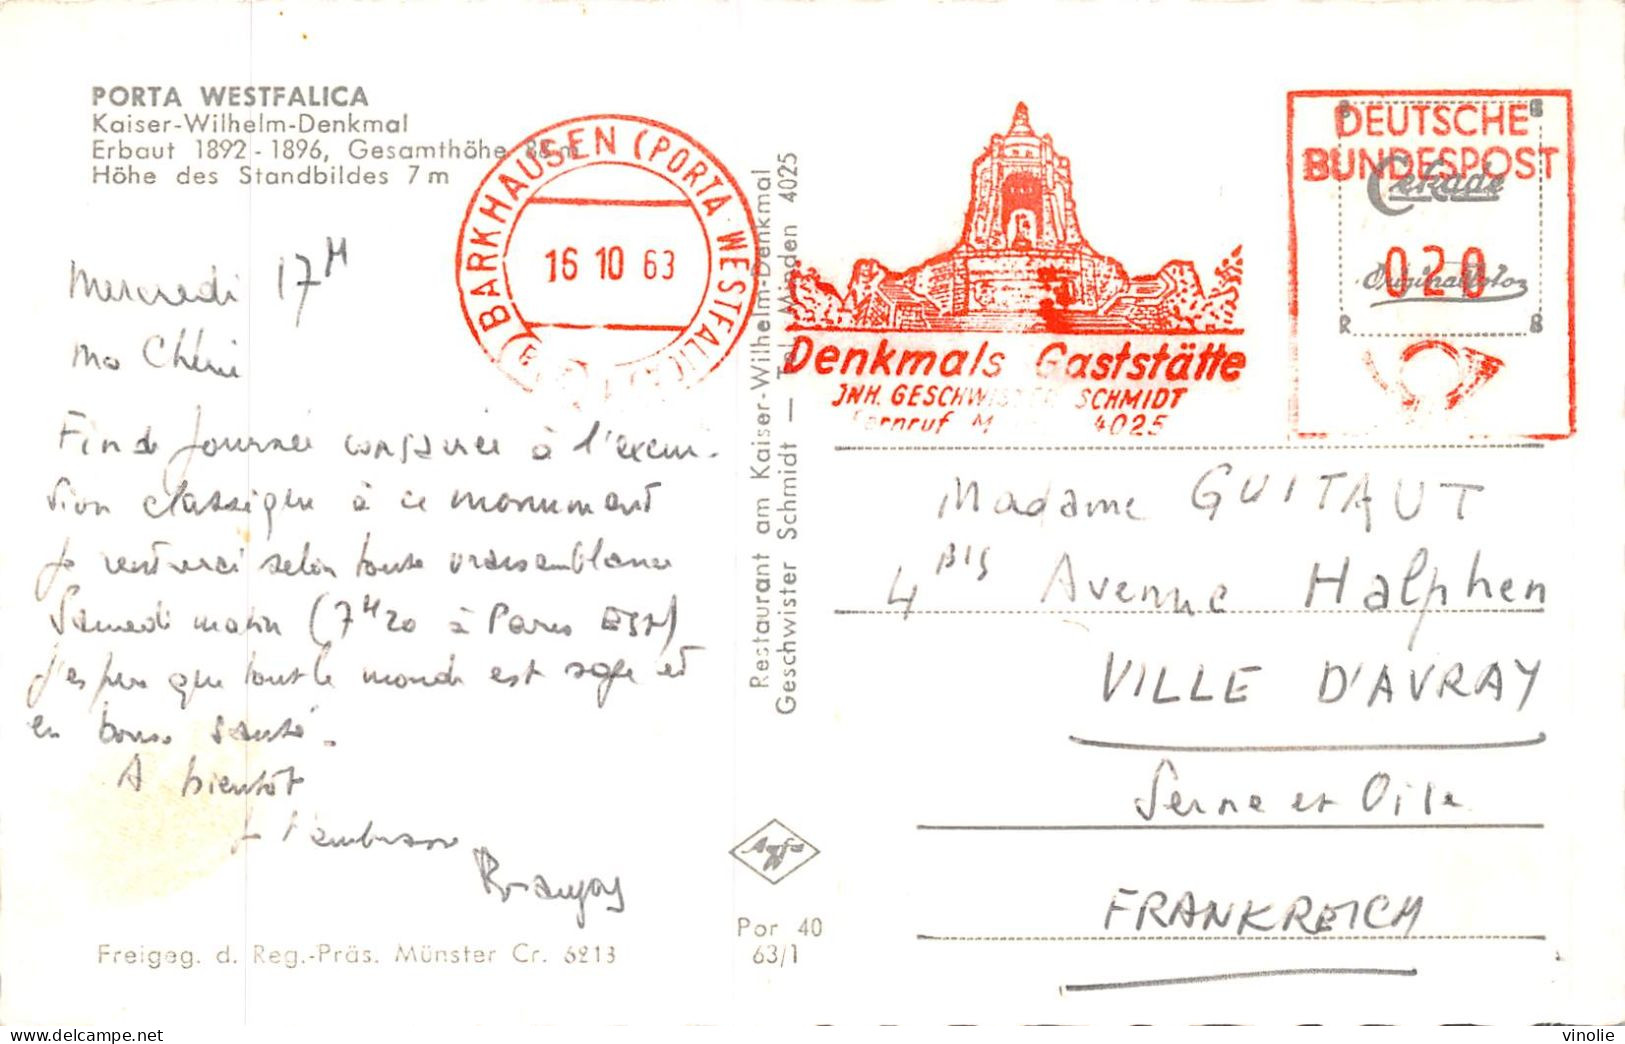 PORTA WESTFALICA
Kaiser-Wilhelm-Denkmal
Erbaut 1892 - 1896, Gesamthöhe 88 m
Höhe des Standbildes 7 m
BARKHAUSEN (PORTA WESTFALICA)
16 10 63
Denkmals Gaststätte
JNH. GESCHWISTER SCHMIDT
Fernruf 4025
DEUTSCHE
BUNDESPOST
Cekade
020
Original Foto
R B
Mercredi 17H
mo Chérie
Fin de Journée consacrée à l'excur-
sion classique à ce monument
Je rentrerai selon toute vraisemblance
Samedi matin (7H20 à Paris EST)
J'espère que tout le monde est sage et
en bonne santé.
A bientôt
Je t'embrasse
Restaurant am Kaiser-Wilhelm-Denkmal
Geschwister Schmidt — Tel. Minden 4025
Madame GUITAUT
4 BIS Avenue Halphen
VILLE D'AVRAY
Seine et Oise
FRANKREICH
Agfa
Por 40
63/1
Freigeg. d. Reg.-Präs. Münster Cr. 6213
vinolie